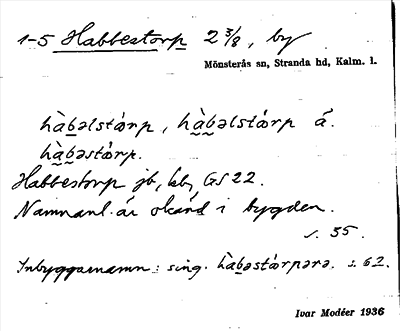 1-5 Habbestorp 2 3/8, by
Mönsterås sn, Stranda hd, Kalm. l.
hàbəlstórp, hàbəlstórp á.
hàbəstórp.
Habbestorp jb, kb, GS 22.
Namnanl. är okänd i bygden.
s. 55.
Inbyggarnamn: sing. hàbəstórpərə. s. 62.
Ivar Modéer 1936